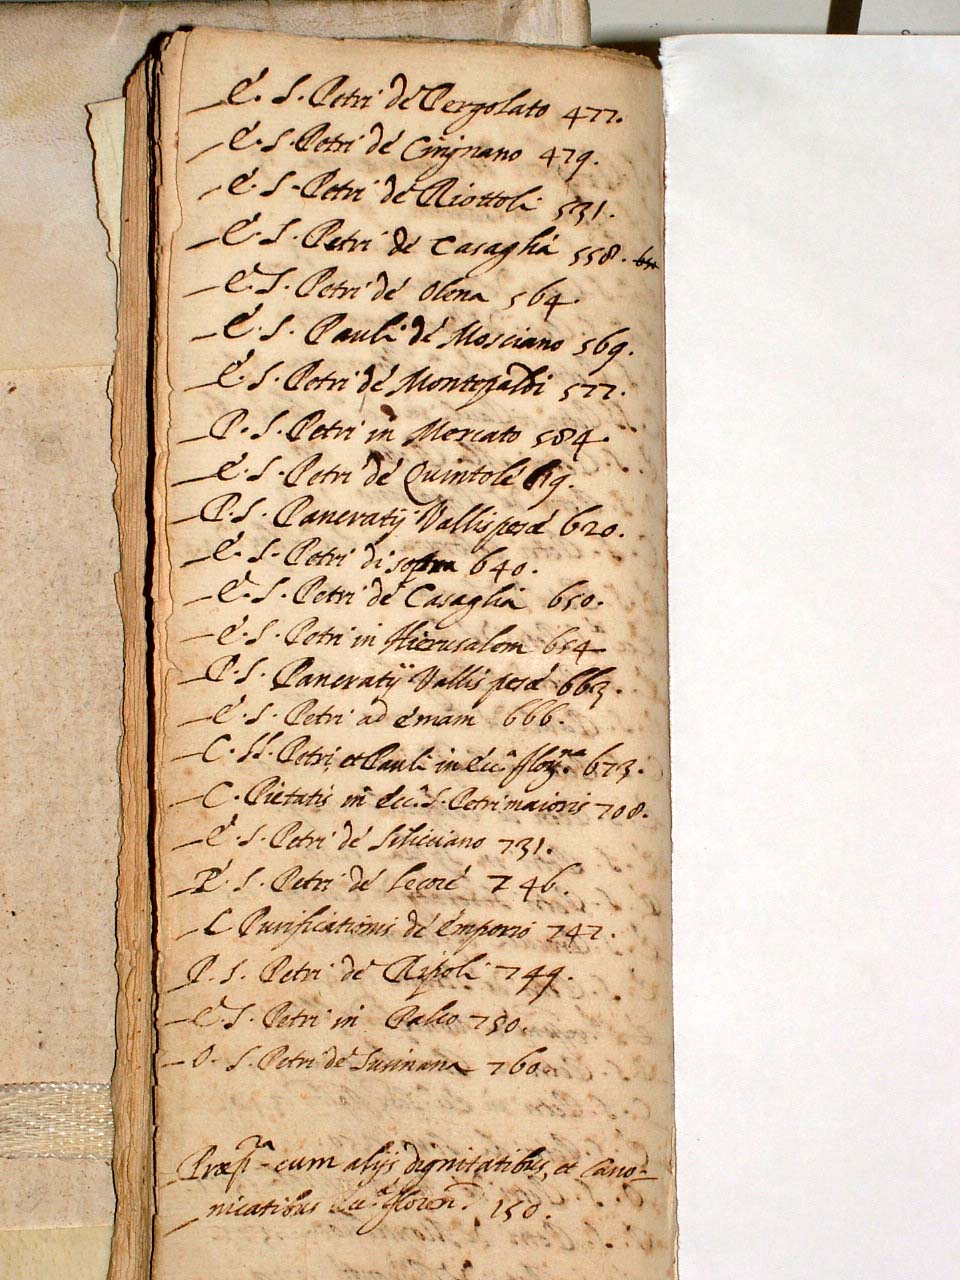 E. S. Petri de Pergolato 477.
E. S. Petri de Cingnano 479.
E. S. Petri de Riottoli 531.
E. S. Petri de Casaglia 558.
E. S. Petri de Olena 564.
E. S. Pauli de Mosciano 569.
E. S. Petri de Montepaldi 577.
P. S. Petri in Mercato 584.
E. S. Petri de Quintole 619.
P. S. Pancratij Vallis pesae 620.
E. S. Petri di sopra 640.
E. S. Petri de Casaglia 650.
E. S. Petri in Hierusalem 654
P. S. Pancratij Vallis pesae 663.
E. S. Petri ad emam 666.
C. SS. Petri, et Pauli in Ecca. florna. 673.
C. Pietatis in Ecca. S. Petri maioris 708.
E. S. Petri de Siliciano 731.
P. S. Petri de Lecore 746.
C Purificationis de Emporio 747.
P. S. Petri de Ripoli 749.
E. S. Petri in Palco 750.
O. S. Petri de Lusinana 760.
cum alijs dignitatibus, et Cano-
nicatibus Ecca. floren. 150.